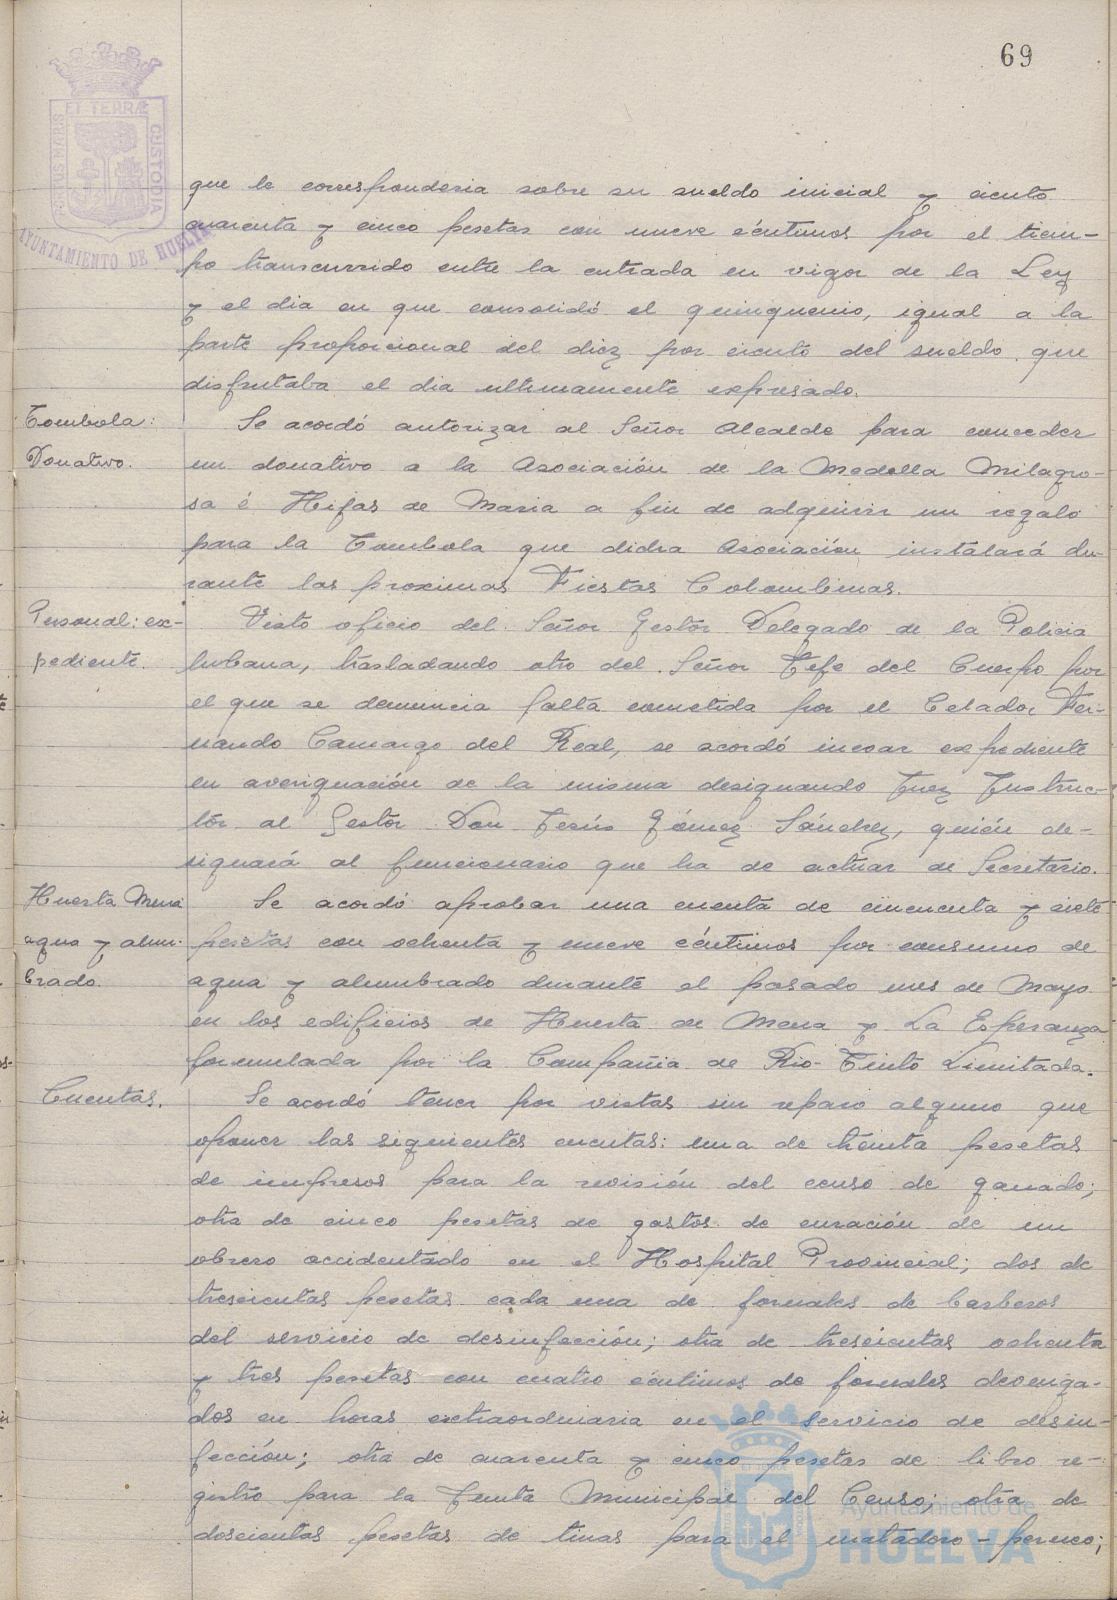 69
PORTUS MARIS ET TERRÆ CUSTODIA
AYUNTAMIENTO DE HUELVA
que le corresponderia sobre su sueldo inicial y ciento
cuarenta y cinco pesetas con nueve céntimos por el tiem-
po transcurrido entre la entrada en vigor de la Ley
y el dia en que consolidó el quinquenio, igual a la
parte proporcional del diez por ciento del sueldo que
disfrutaba el dia ultimamente expresado.
Tombola:
Donativo.
Se acordó autorizar al Señor Alcalde para conceder
un donativo a la Asociación de la Medalla Milagro-
sa é Hijas de Maria a fin de adquirir un regalo
para la Tombola que dicha Asociación instalará du-
rante las proximas Fiestas Colombinas.
Personal: ex-
pediente.
Visto oficio del Señor Gestor Delegado de la Policia
Urbana, trasladando otro del Señor Jefe del Cuerpo por
el que se denuncia falta cometida por el Celador Fer-
nando Camargo del Real, se acordó incoar expediente
en averiguación de la misma designando Juez Instruc-
tor al Gestor Don Jesús Gómez Sánchez, quién de-
signará al funcionario que ha de actuar de Secretario.
Huerta Mena
agua y alum-
brado.
Se acordó aprobar una cuenta de cincuenta y siete
pesetas con ochenta y nueve céntimos por consumo de
agua y alumbrado durante el pasado mes de Mayo
en los edificios de Huerta de Mena y La Esperanza
formulada por la Compañia de Rio-Tinto Limitada.
Cuentas.
Se acordó tener por vistas sin reparo alguno que
oponer las siguientes cuentas: una de treinta pesetas
de impresos para la revisión del censo de ganado;
otra de cinco pesetas de gastos de curación de un
obrero accidentado en el Hospital Provincial; dos de
trescientas pesetas cada una de jornales de barberos
del servicio de desinfección; otra de trescientas ochenta
y tres pesetas con cuatro céntimos de jornales devenga-
dos en horas extraordinaria en el servicio de desin-
fección; otra de cuarenta y cinco pesetas de libro re-
gistro para la Junta Municipal del Censo; otra de
doscientas pesetas de tinas para el matadero-
Ayuntamiento de
HUELVA